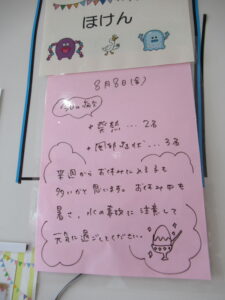 ほけん
8月8日(金)
今日の病気
+ 発熱…2名
+ 風邪症状…3名
来週からお休みに入る子も
多いかと思います。お休み中も
暑さ、水の事故に注意して
元気に過ごしてください。